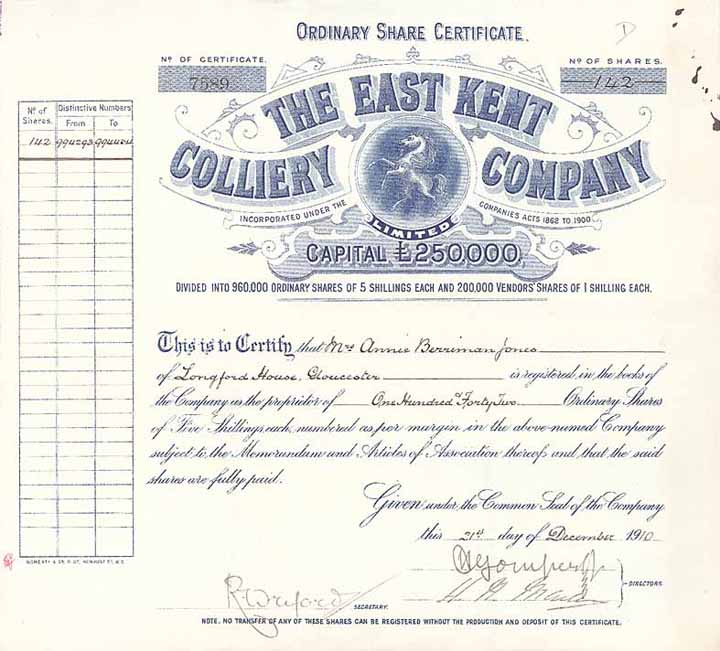 ORDINARY SHARE CERTIFICATE.
Nº OF CERTIFICATE.
7589
Nº OF SHARES.
142
THE EAST KENT
COLLIERY COMPANY
INCORPORATED UNDER THE COMPANIES ACTS 1862 TO 1900
LIMITED
CAPITAL £250,000.
DIVIDED INTO 960,000 ORDINARY SHARES OF 5 SHILLINGS EACH AND 200,000 VENDORS' SHARES OF 1 SHILLING EACH.
Nº of Shares. Distinctive Numbers
From To
142
This is to Certify that Mrs Annie Berriman Jones
of Longford House, Gloucester is registered in the books of
the Company as the proprietor of One Hundred & Forty Two Ordinary Shares
of Five Shillings each, numbered as per margin in the above-named Company
subject to the Memorandum and Articles of Association thereof and that the said
shares are fully paid.
Given under the Common Seal of the Company
this 21st day of December 1910
DIRECTORS
SECRETARY.
NOTE. NO TRANSFER OF ANY OF THESE SHARES CAN BE REGISTERED WITHOUT THE PRODUCTION AND DEPOSIT OF THIS CERTIFICATE.